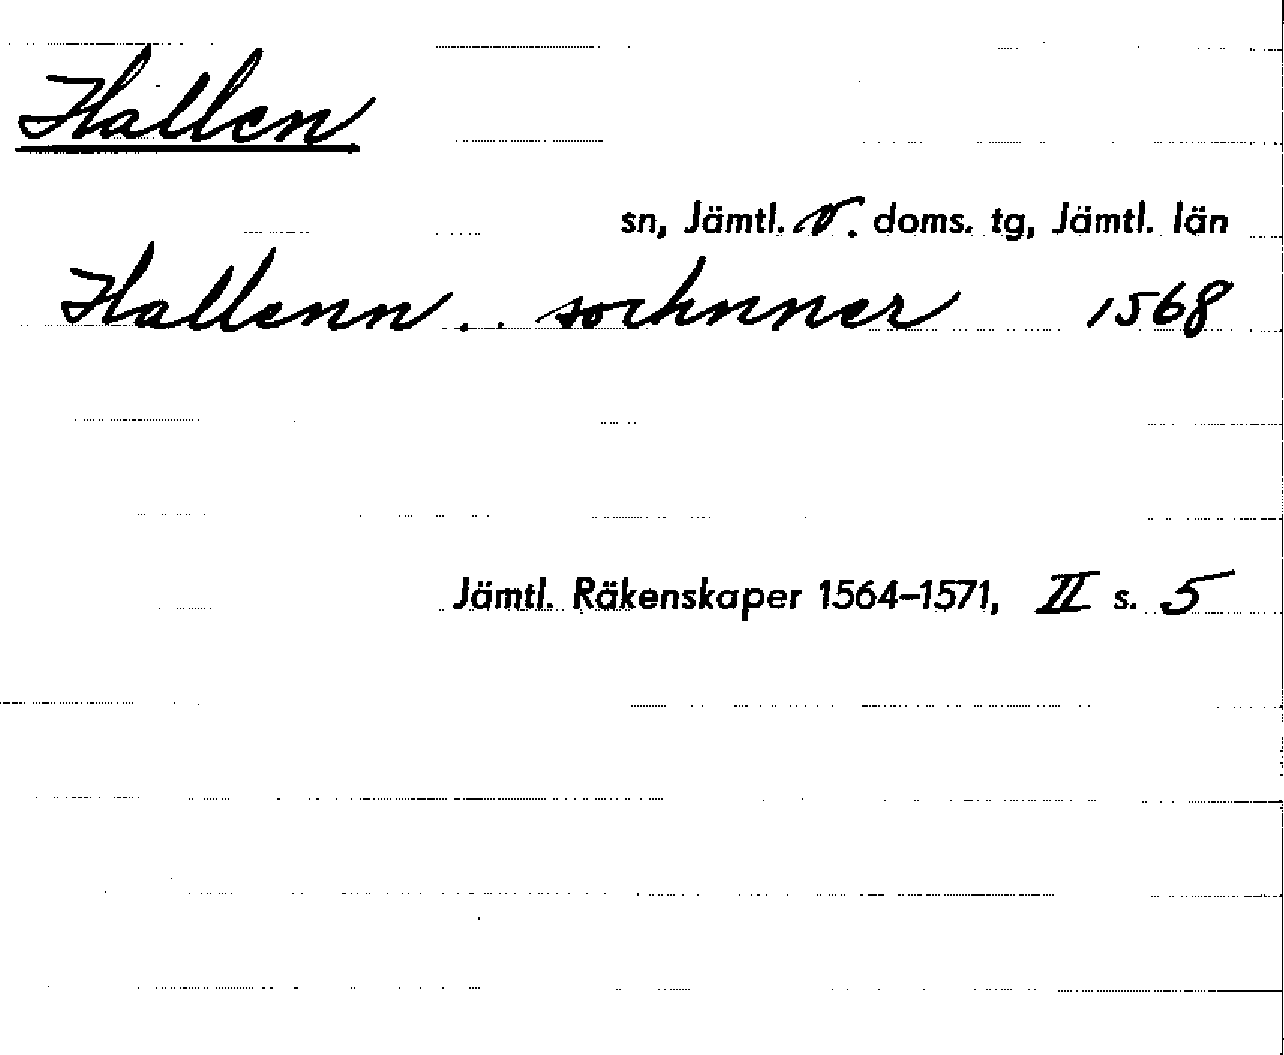 Hallen
sn, Jämtl. v. doms. tg, Jämtl. län
Hallenn.. sochnner 1568
Jämtl. Räkenskaper 1564–1571, II s. 5